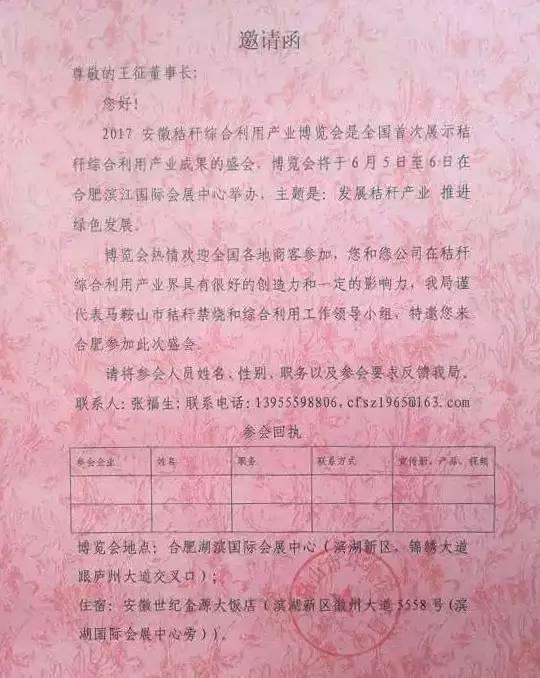 邀请函
尊敬的王征董事长:
您好!
2017 安徽秸秆综合利用产业博览会是全国首次展示秸
秆综合利用产业成果的盛会。博览会将于6月5日至6日在
合肥滨江国际会展中心举办,主题是:发展秸秆产业 推进
绿色发展。
博览会热情欢迎全国各地商客参加,您和您公司在秸秆
综合利用产业界具有很好的创造力和一定的影响力,我局谨
代表马鞍山市秸秆禁烧和综合利用工作领导小组,特邀您来
合肥参加此次盛会。
请将参会人员姓名、性别、职务以及参会要求反馈我局。
联系人:张福生;联系电话:13955598806,cfsz1965@163.com
参会回执
参会企业 姓名 职务 联系方式 宣传册、产品、视频
博览会地点:合肥湖滨国际会展中心(滨湖新区,锦绣大道
跟庐州大道交叉口);
住宿:安徽世纪金源大饭店(滨湖新区徽州大道5558号(滨
湖国际会展中心旁))。